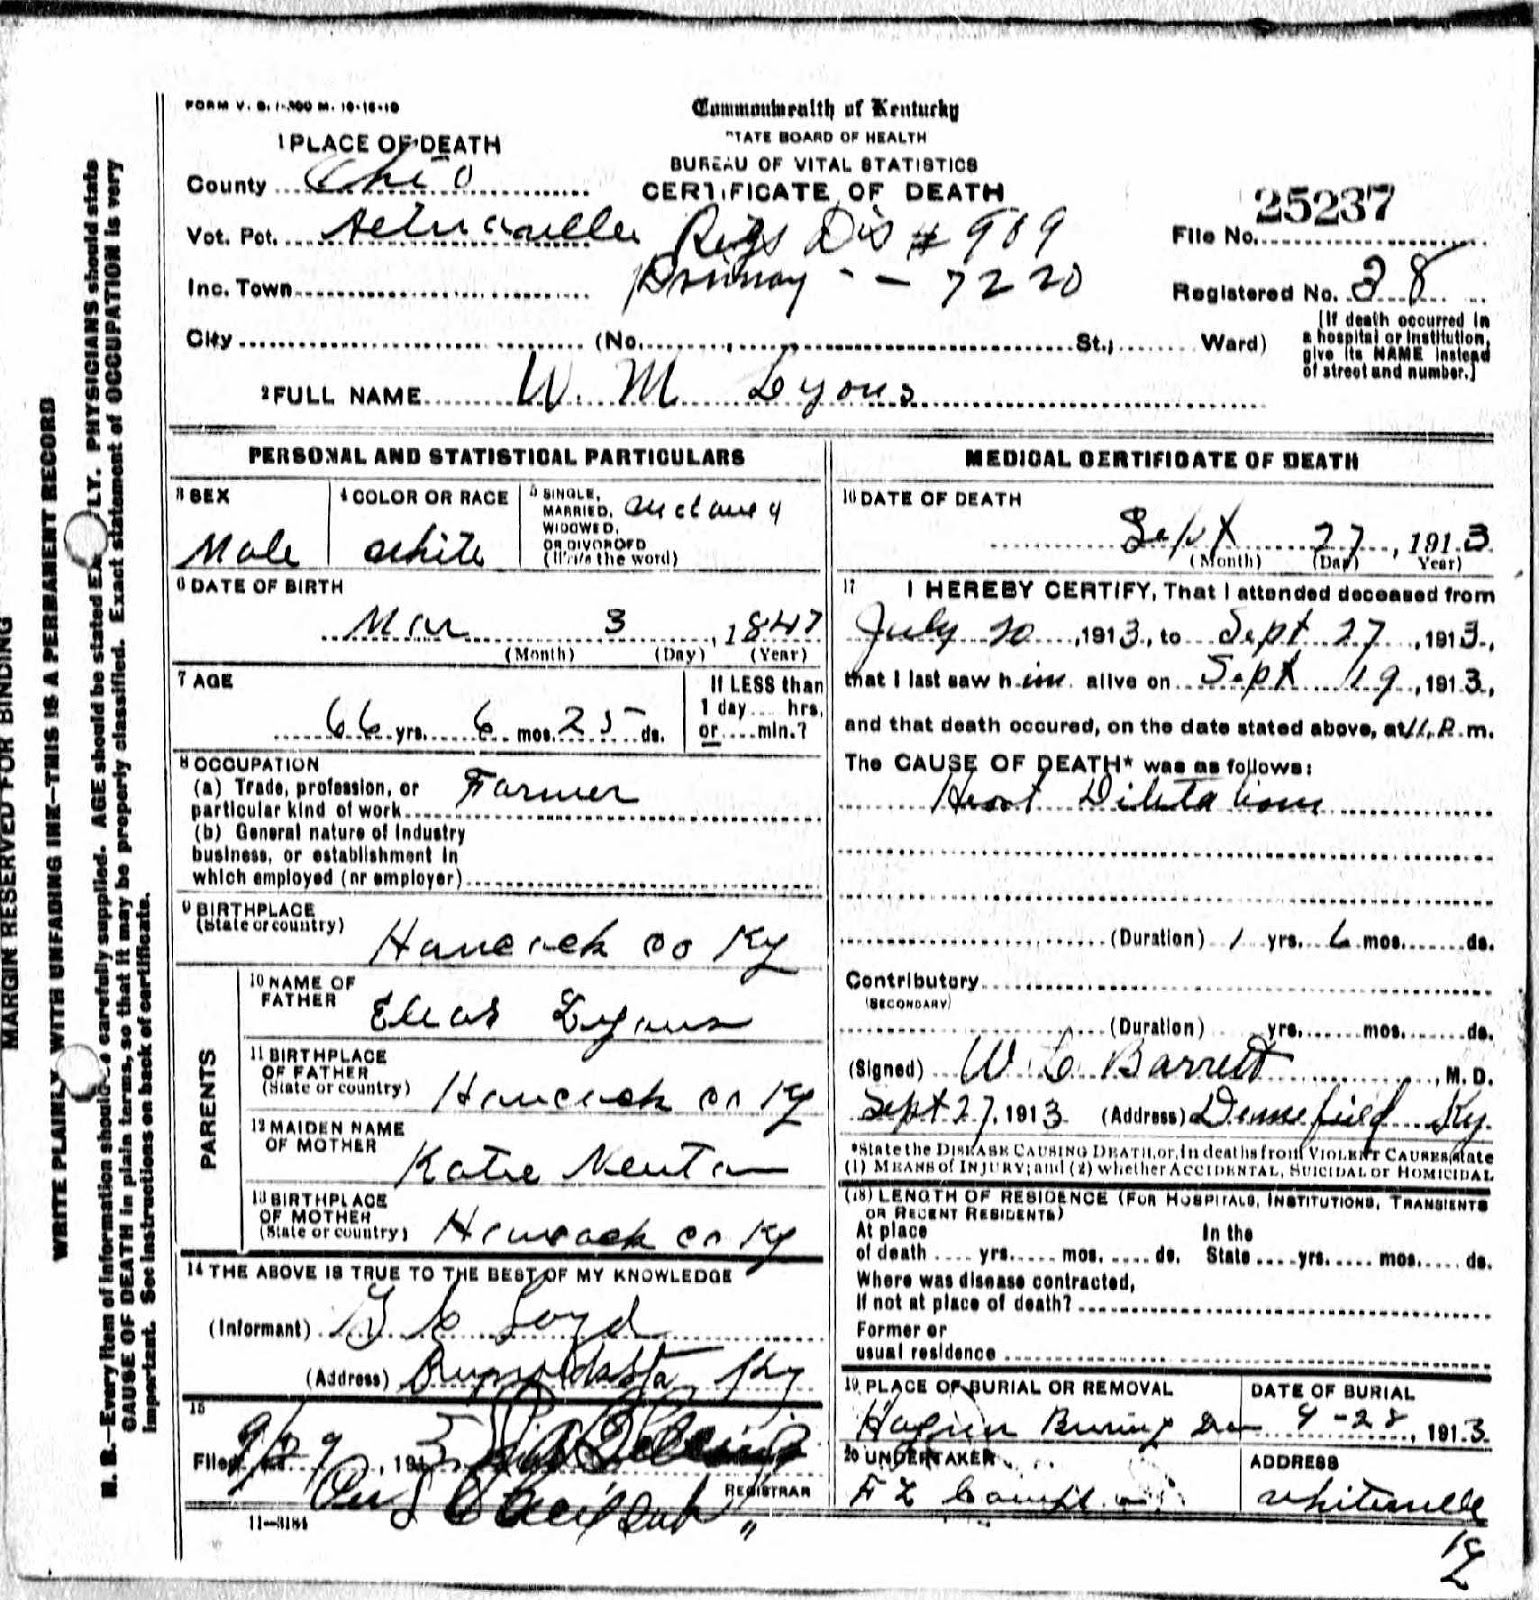 FORM V. S. 1-300 M. 10-16-10
Commonwealth of Kentucky
STATE BOARD OF HEALTH
BUREAU OF VITAL STATISTICS
CERTIFICATE OF DEATH
1 PLACE OF DEATH
County Ohio
Vot. Pct. Aetnaville Regs Dis # 989
Inc. Town Primay - - 7220
City (No. St.; Ward)
25237
File No.
Registered No. 38
[If death occurred in
a hospital or institution,
give its NAME instead
of street and number.]
2 FULL NAME W. M Lyons
PERSONAL AND STATISTICAL PARTICULARS
3 SEX
Male
4 COLOR OR RACE
white
5 SINGLE,
MARRIED,
WIDOWED,
OR DIVORCED
(Write the word)
6 DATE OF BIRTH
Mar 3, 1847
(Month) (Day) (Year)
7 AGE
66 yrs. 6 mos. 25 ds.
If LESS than
1 day.... hrs.
or....min.?
8 OCCUPATION
(a) Trade, profession, or
particular kind of work Farmer
(b) General nature of Industry
business, or establishment in
which employed (or employer)
9 BIRTHPLACE
(State or country) Hancock co Ky
PARENTS
10 NAME OF
FATHER Elias Lyons
11 BIRTHPLACE
OF FATHER
(State or country) Hancock co Ky
12 MAIDEN NAME
OF MOTHER Katie Newton
13 BIRTHPLACE
OF MOTHER
(State or country) Hancock co Ky
14 THE ABOVE IS TRUE TO THE BEST OF MY KNOWLEDGE
(Informant) Loyd
(Address) Ky
15
Filed 9/29, 1913
REGISTRAR
11—3184
MEDICAL CERTIFICATE OF DEATH
16 DATE OF DEATH
Sept 27, 1913
(Month) (Day) (Year)
17 I HEREBY CERTIFY, That I attended deceased from
July 20, 1913, to Sept 27, 1913,
that I last saw him alive on Sept 19, 1913,
and that death occured, on the date stated above, at 11.P.m.
The CAUSE OF DEATH* was as follows:
Heart Dilitations
(Duration) 1 yrs. 6 mos. ds.
Contributory
(SECONDARY)
(Duration) yrs. mos. ds.
(Signed) W C Barrett, M. D.
Sept 27, 1913 (Address) Ky.
*State the DISEASE CAUSING DEATH, or, in deaths from VIOLENT CAUSES, state
(1) MEANS of INJURY; and (2) whether ACCIDENTAL, SUICIDAL or HOMICIDAL
(18) LENGTH OF RESIDENCE (FOR HOSPITALS, INSTITUTIONS, TRANSIENTS
OR RECENT RESIDENTS)
At place
of death.... yrs..... mos..... ds.
In the
State.... yrs..... mos..... ds.
Where was disease contracted,
If not at place of death?
Former or
usual residence
19 PLACE OF BURIAL OR REMOVAL
DATE OF BURIAL
9-28, 1913
20 UNDERTAKER
ADDRESS
Whitesville
MARGIN RESERVED FOR BINDING
WRITE PLAINLY WITH UNFADING INK—THIS IS A PERMANENT RECORD
N. B.—Every item of information should be carefully supplied. AGE should be stated EXACTLY. PHYSICIANS should state
CAUSE OF DEATH in plain terms, so that it may be properly classified. Exact statement of OCCUPATION is very
important. See instructions on back of certificate.